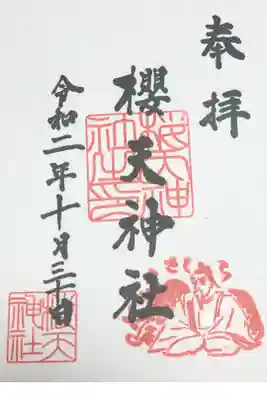 奉拝
櫻天神社
令和二年十月三十日
櫻天神社印
櫻天神社
さくら